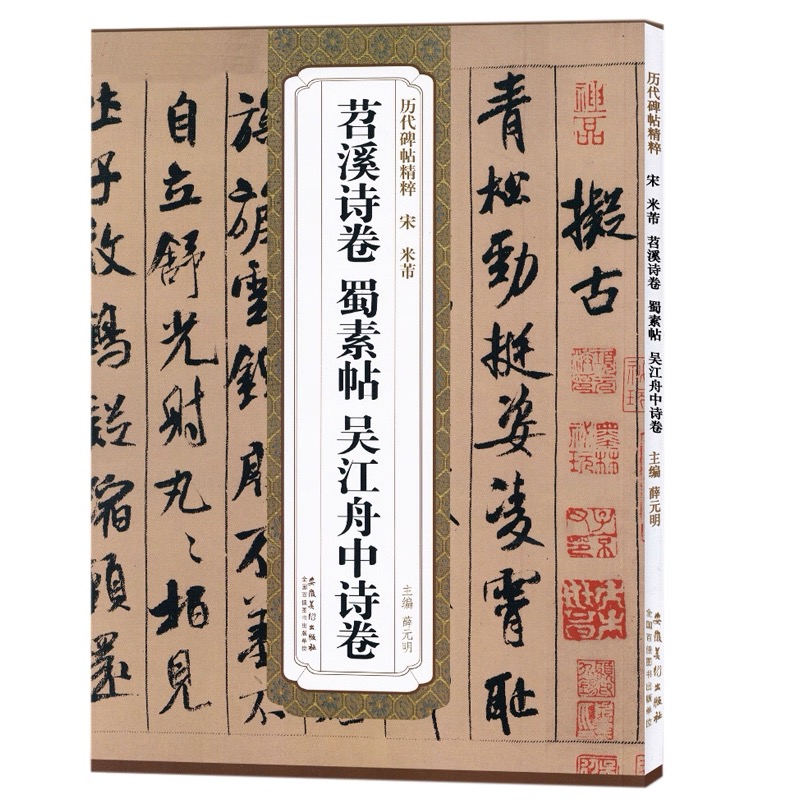 历代碑帖精粹 宋 米芾
苕溪诗卷 蜀素帖 吴江舟中诗卷
主编 薛元明
安徽美术出版社
全国百佳图书出版单位
神品
擬古
青松勁挺姿凌霄恥
旖旎雲錦殷不羞不
自立舒光射丸〻柏見
吐子效鶴疑縮頸還
历代碑帖精粹 宋 米芾 苕溪诗卷 蜀素帖 吴江舟中诗卷 主编 薛元明
安徽美术出版社
全国百佳图书出版单位